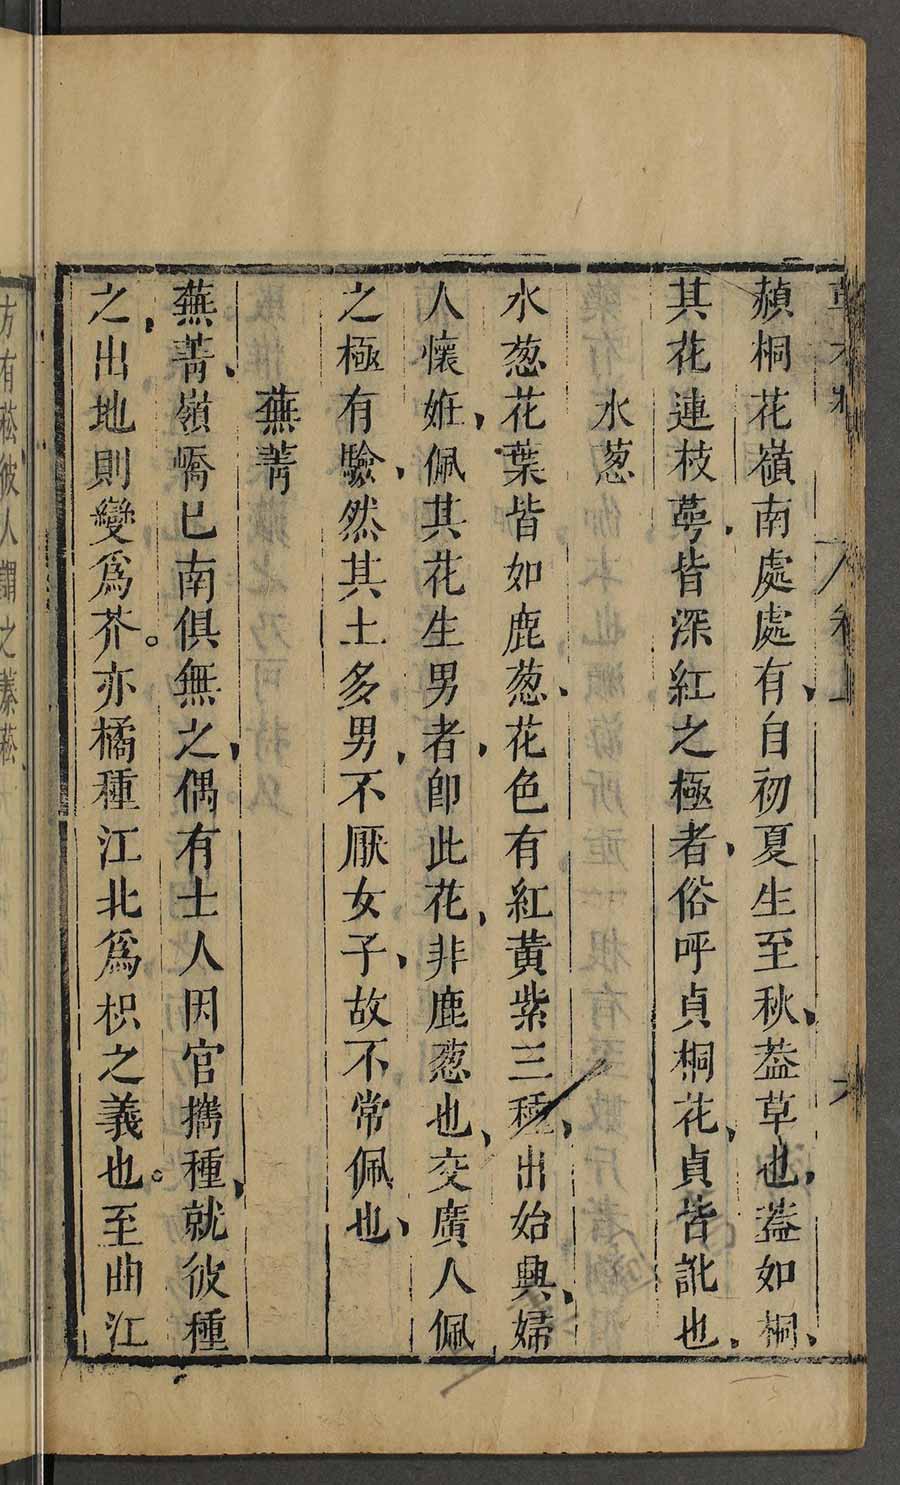 赬桐花嶺南處處有自初夏生至秋葢草也葢如桐
其花連枝萼皆深紅之極者俗呼貞桐花貞皆訛也
水葱
水葱花葉皆如鹿葱花色有紅黃紫三種出始興婦
人懷姙佩其花生男者卽此花非鹿葱也交廣人佩
之極有驗然其土多男不厭女子故不常佩也
蕪菁
蕪菁嶺嶠已南俱無之偶有士人因官攜種就彼種
之出地則變爲芥亦橘種江北爲枳之義也至曲江
方有菘彼人謂之蓁菘